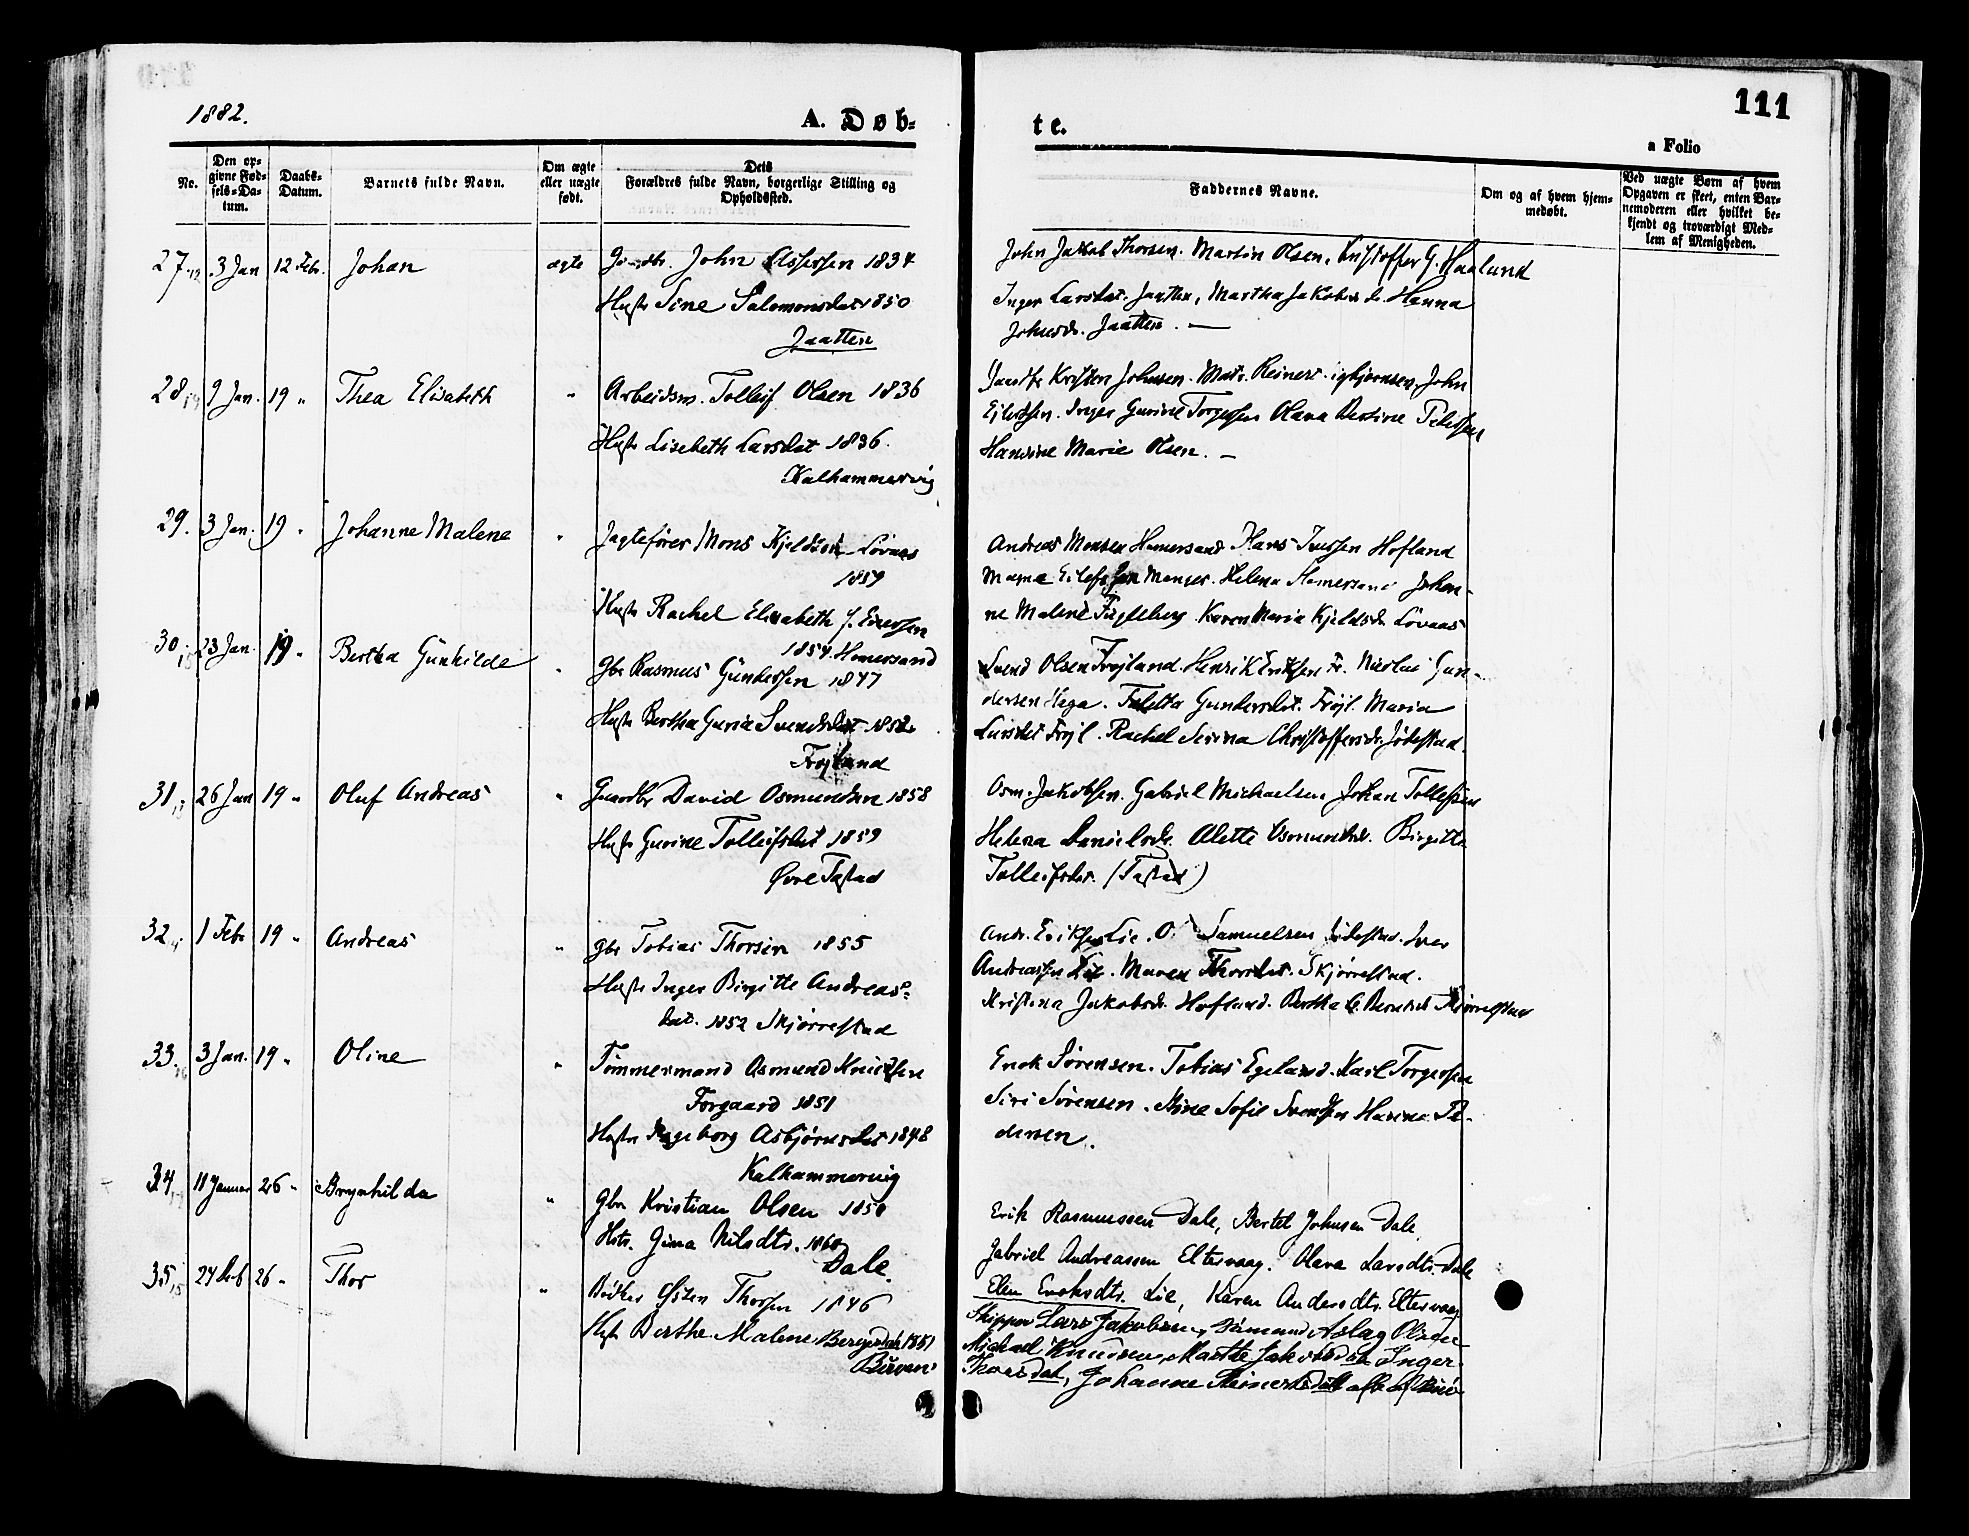 1882.
A. Døb=
te.
111
a Folio
No.
Den op=
givne Fød=
sels=Da=
tum.
Daabs=
Datum.
Barnets fulde Navn.
Om ægte
eller uægte
født.
Dets
Forældres fulde Navn, borgerlige Stilling og
Opholdssted.
Faddernes Navne.
Om og af hvem hjem=
medøbt.
Ved uægte Børn af hvem
Opgaven er skeet, enten Bar=
nemoderen eller hvilket be=
kjendt og troværdigt Med=
lem af Menigheden.
27 3 Jan 12 Febr. Johan ægte John Assersen 1834
Hustr Sine Salomonsdat 1850
Jaatten
John Jakob Thorsen. Martin Olsen, Kristoffer G. Haalund
Inger Larsdat. Jaatten, Martha Jakobsd. Hanna
Johnsd. Jaatten. —
28 9 Jan. 19 " Thea Elisabeth " Arbeidsm. Tolleif Olsen 1836
Hustr Lisebeth Larsdat 1836.
Kalhammervig
Kristen Johnsen. Reinert John
Inger Gurine Torgersen Olava
Marie Olsen. —
29. 3 Jan. 19 " Johanne Malene " Jagtefører Mons Kjeldsen Lovaas
1859
Hustr Rachel Elisabeth J. Eversen
1854. Hemersand
Andreas Monsen Hemersand Hans Hofland
Helena Hemersand Johan-
ne Malene Fugleberg Karen Maria Kjeldsd. Lovaas
30 23 Jan. 19 " Bertha Gunhilde " Gbr Rasmus Gundersen 1847
Hustr Bertha Guria Svendsdat 1852
Frøjland
Svend Olsen Frøjland. Henrik Eriksen Fr. Nicolai Gun-
dersen Haga. Gundersdat. Frøjl. Maria
Larsdat Frøjl. Rachel Serina Christoffersd. Jødestad.
31 26 Jan 19 " Oluf Andreas " Gaardbr David Osmundsen 1858
Hustr Gurine Tolleifsdat 1859
Øvre Tastad
Osm. Jakobsen. Gabriel Michaelsen Johan Tollefsen
Helena Danielsd. Alette Osmundsd. Birgitte
Tolleifsdat. (Tastad)
32 1 Febr 19 " Andreas " gbr Tobias Thorsen 1855
Hustr Inger Birgitte Andreas=
dat. 1852 Skjørrestad
Andr. Eriksen Lie. O. Samuelsen Jødestad. Iver
Andreassen Lie. Maren Thorsdat. Skjørrestad.
Kristina Jakobsd. Hofland. Bertha Skjørrestad
33. 3 Jan. 19 " Oline " Tømmermand Osmund Knudsen
Forgaard 1851
Hustr Ingeborg Asbjørnsdat 1848
Kalhammervig
Enok Sørensen. Tobias Egeland. Karl Torgersen
Siri Sørensen. Stine Sofie Svendsen Hanna Pe-
dersen.
34. 11 Januar 26 " Brynhilda " Gbr. Kristian Olsen 1850
Hstr. Gina Nilsdtr. 1860
Dale.
Erik Rasmussen Dale, Bertel Johnsen Dale.
Gabriel Andreassen Eltervaag. Olava Larsdtr. Dale
Elen Enoksdtr. Lie, Karen Andersdtr. Eltervaag
35 26 " Thor " Bødker Østen Thorsen 1846
Hustr Berthe Malene
Buøen
Skipper Lars Jakobsen, Sømand Aslag Olsen
Michael Knudsen, Marthe Jakobsdat Inger
Thorsdat, Johanne Reinertsdat alle af Buø